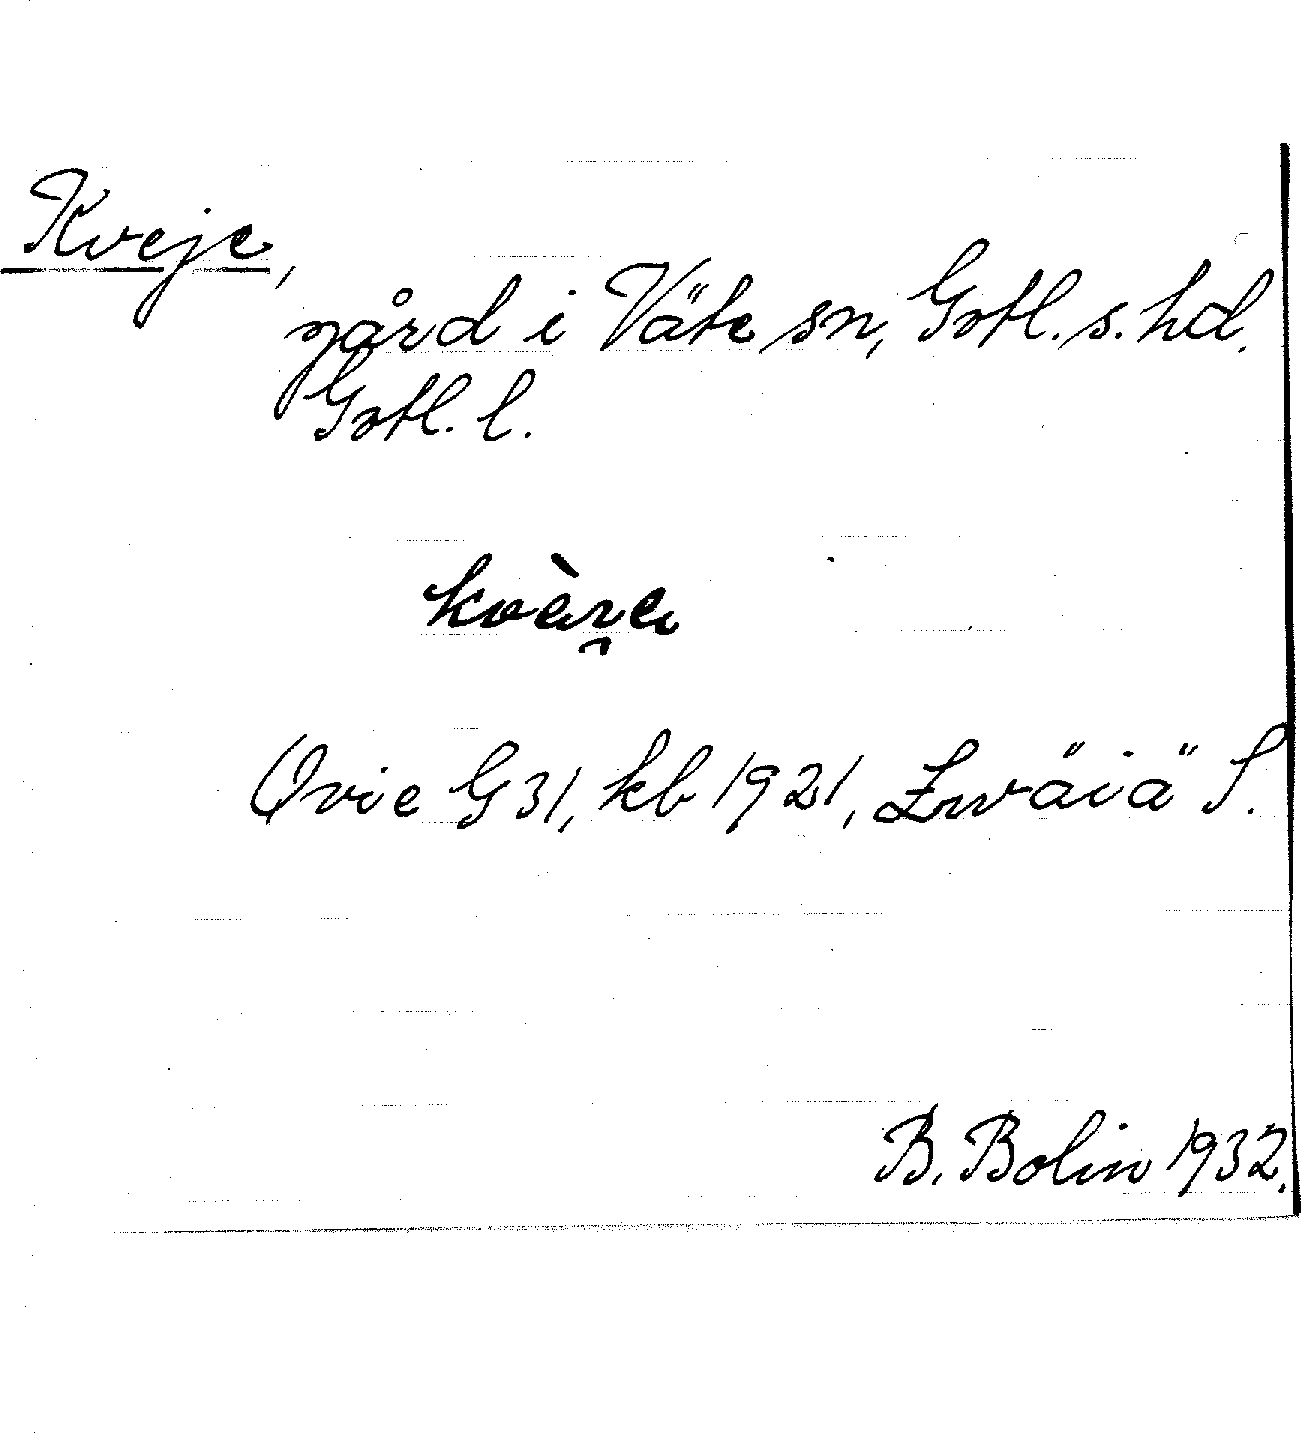 Kveje,
gård i Väte sn, Gotl. s. hd.
Gotl. l.
Qvie G 31, kb 1921, Zwäiä S.
B. Bolin 1932.